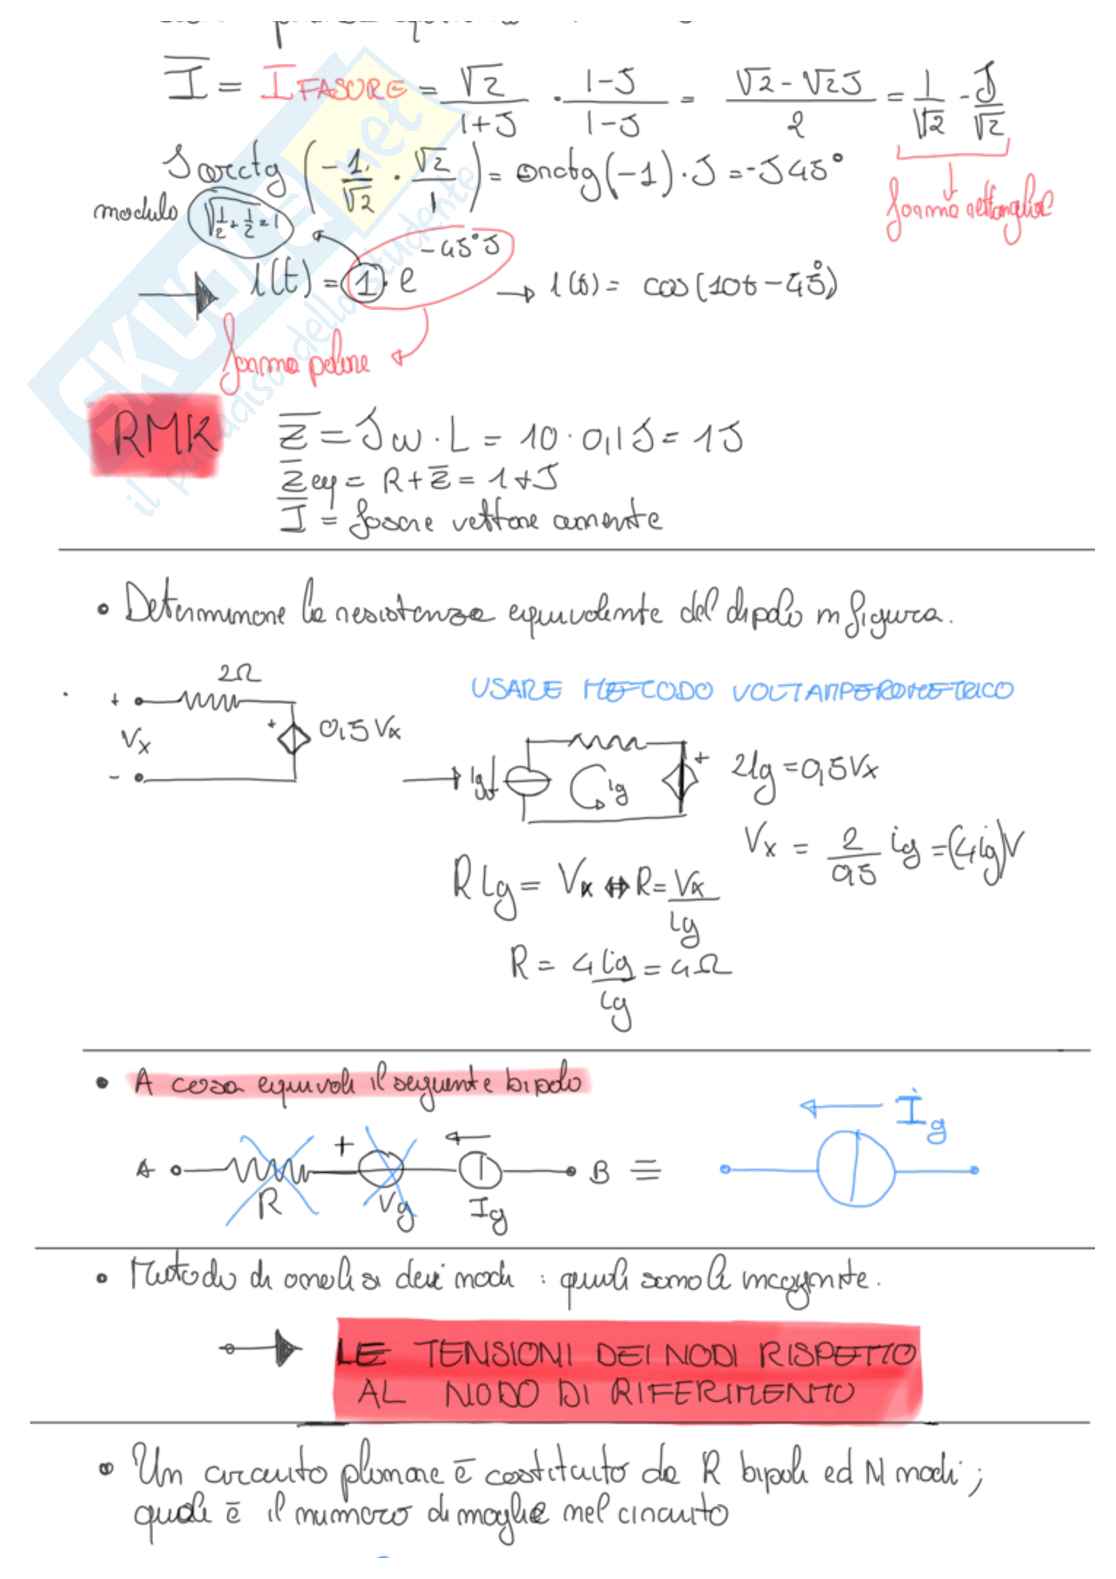 I = I FASORE = √2/(1+J) · (1-J)/(1-J) = (√2-√2J)/2 = 1/√2 - J/√2
J arctg (-1/√2 · √2/1) = arctg(-1)·J = -J45°
forma rettangolare
modulo √(1/2+1/2)=1
i(t) = 1·e^(-45°J) → i(t) = cos(10t-45°)
forma polare
RMK
Z = Jω·L = 10·0,1J = 1J
Zeq = R+Z = 1+J
I = fasore vettore corrente
• Determinare la resistenza equivalente del dipolo in figura.
2Ω
USARE METODO VOLTAMPEROMETRICO
+
Vx
-
+
0,5Vx
Ig
ig
+
2Ig = 0,5Vx
Vx = 2/0,5 ig = (4ig)V
R Ig = Vx ⇔ R = Vx/Ig
R = 4ig/ig = 4Ω
• A cosa equivale il seguente bipolo
A R + Vg Ig B ≡ Ig
• Metodo di analisi dei nodi : quali sono le incognite.
LE TENSIONI DEI NODI RISPETTO
AL NODO DI RIFERIMENTO
• Un circuito planare è costituito da R bipoli ed N nodi;
qual è il numero di maglie nel circuito
SKUOLA.net
il paradiso dello studente